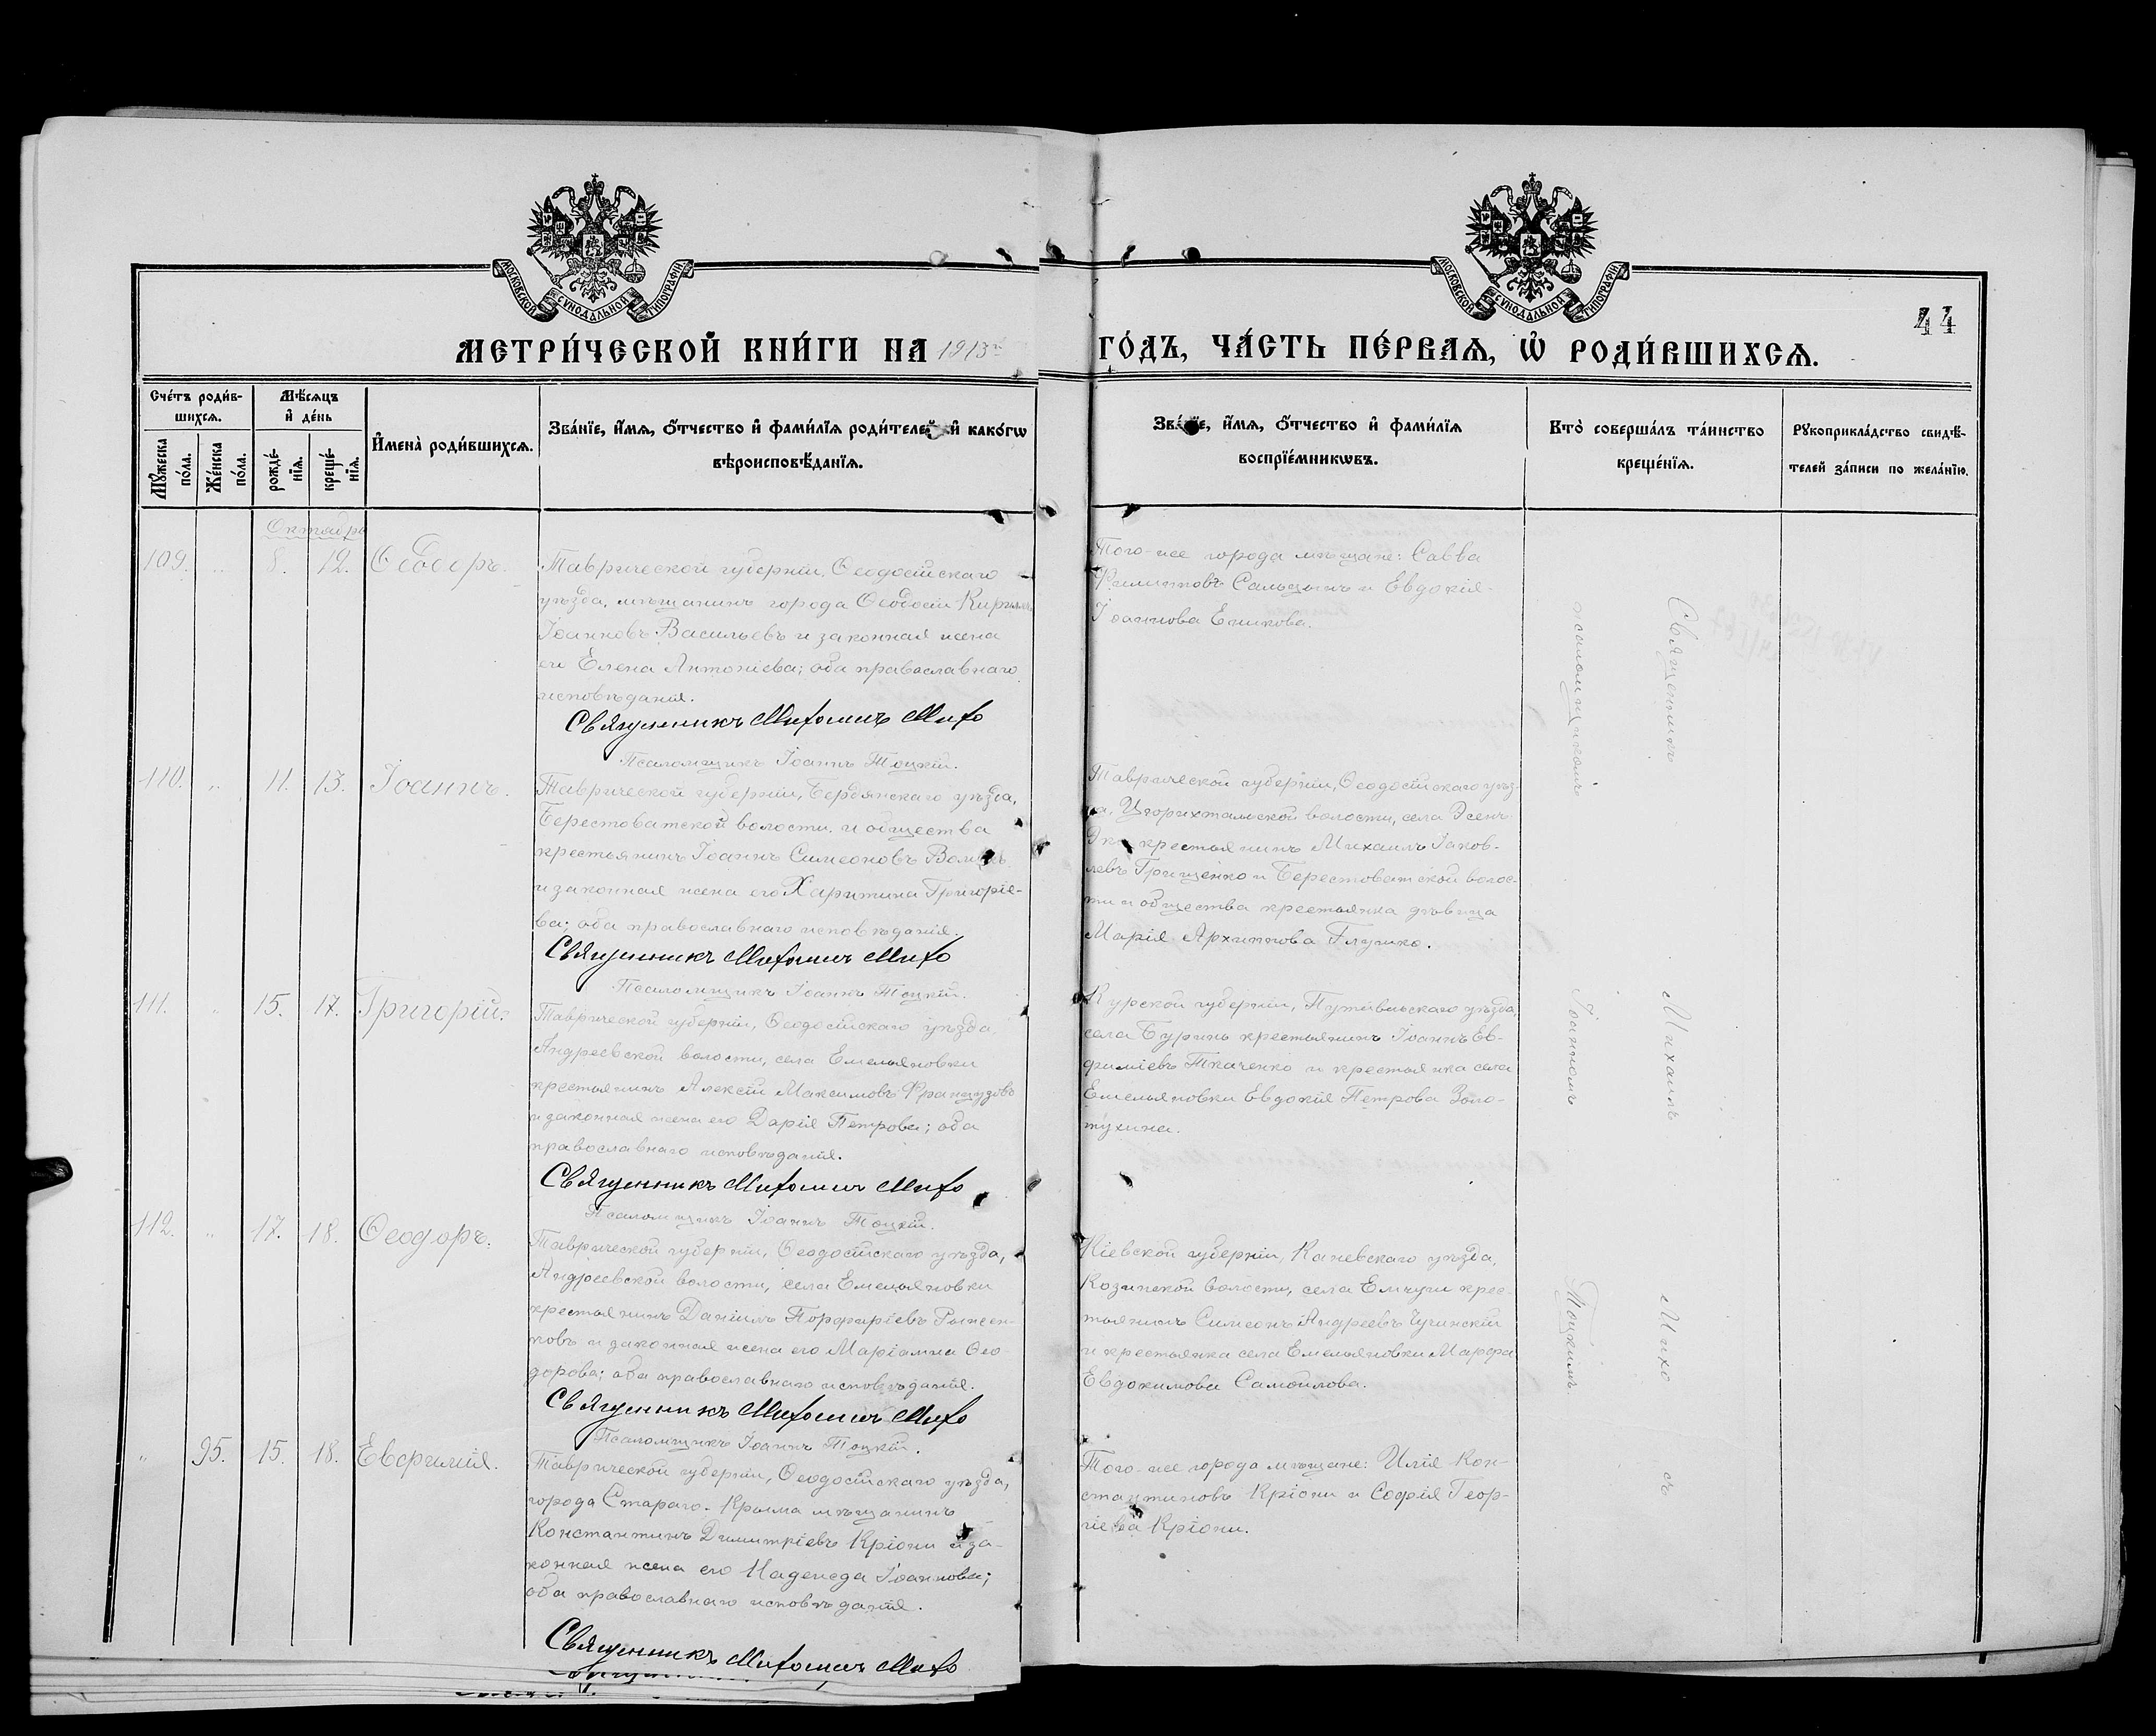 МОСКОВСКОЙ СУНОДАЛЬНОЙ ТИПОГРАФІИ
МОСКОВСКОЙ СУНОДАЛЬНОЙ ТИПОГРАФІИ
44
МЕТРИ́ЧЕСКОЙ КНИ́ГИ НА 1913й ГО́ДЪ, ЧА́СТЬ ПЕ́РВАѦ, Ѡ҆ РОДИ́ВШИХСѦ.
Сче́тъ роди́в-
шихсѧ.
Мѣ́сѧцъ
и҆ де́нь
Мꙋ́жеска по́ла.
Же́нска по́ла.
рожде́-нїѧ.
креще́-нїѧ.
И҆мена̀ роди́вшихсѧ.
Зва́нїе, и҆́мѧ, ѻ҆́тчество и҆ фами́лїѧ роди́телей и҆ како́гѡ
вѣроисповѣ́данїѧ.
Зва́нїе, и҆́мѧ, ѻ҆́тчество и҆ фами́лїѧ
воспрїе́мникѡвъ.
Кто̀ соверша́лъ та́инство
креще́нїѧ.
Рꙋкоприкла́дство свидѣ́-
телей за́писи по жела́нїю.
Октябрь
109. „ 8. 12. Ѳеодоръ.
Таврической губерніи, Ѳеодосійскаго
уѣзда, мѣщанинъ города Ѳеодосіи Кириллъ
Іоанновъ Васильевъ и законная жена
его Елена Антоніева; оба православнаго
исповѣданія.
Священникъ Михаилъ Михо
Псаломщикъ Іоаннъ Тоцкій.
Того-же города мѣщане: Савва
Филипповъ Сальцынъ и Евдокія
Іоаннова Еникова.
110. „ 11. 13. Іоаннъ.
Таврической губерніи, Бердянскаго уѣзда,
Берестоватской волости и общества
крестьянинъ Іоаннъ Симеоновъ
и законная жена его Харитина Григоріе-
ва; оба православнаго исповѣданія.
Священникъ Михаилъ Михо
Псаломщикъ Іоаннъ Тоцкій.
Таврической губерніи, Ѳеодосійскаго уѣз-
да, волости, села
крестьянинъ Михаилъ Іаков-
левъ Грищенко и Берестоватской волос-
ти и общества крестьянка дѣвица
Марія Архиппова Глушко.
111. „ 15. 17. Григорій.
Таврической губерніи, Ѳеодосійскаго уѣзда,
Андреевской волости, села Емельяновки
крестьянинъ Алексій Максимовъ Французовъ
и законная жена его Дарія Петрова; оба
православнаго исповѣданія.
Священникъ Михаилъ Михо
Псаломщикъ Іоаннъ Тоцкій.
Курской губерніи, Путивльскаго уѣзда,
села Бурынь крестьянинъ Іоаннъ Ев-
фиміевъ Ткаченко и крестьянка села
Емельяновки Евдокія Петрова Золо-
тухина.
112. „ 17. 18. Ѳеодоръ.
Таврической губерніи, Ѳеодосійскаго уѣзда,
Андреевской волости, села Емельяновки
крестьянинъ Даніилъ Порфиріевъ Рыжен-
ковъ и законная жена его Маріамна Ѳео-
дорова; оба православнаго исповѣданія.
Священникъ Михаилъ Михо
Псаломщикъ Іоаннъ Тоцкій.
Кіевской губерніи, Каневскаго уѣзда,
Козинской волости, села Емчихи крес-
тьянинъ Симеонъ Андреевъ
и крестьянка села Емельяновки Марфа
Евдокимова Самойлова.
„ 95. 15. 18. Евфимія.
Таврической губерніи, Ѳеодосійскаго уѣзда,
города Стараго-Крыма мѣщанинъ
Константинъ Димитріевъ Кріони и за-
конная жена его Надежда Іоаннова;
оба православнаго исповѣданія.
Священникъ Михаилъ Михо
Того-же города мѣщане: Илія Кон-
стантиновъ Кріони и Софія Геор-
гіева Кріони.
Священникъ Михаилъ Михо съ
псаломщикомъ Іоанномъ Тоцкимъ.